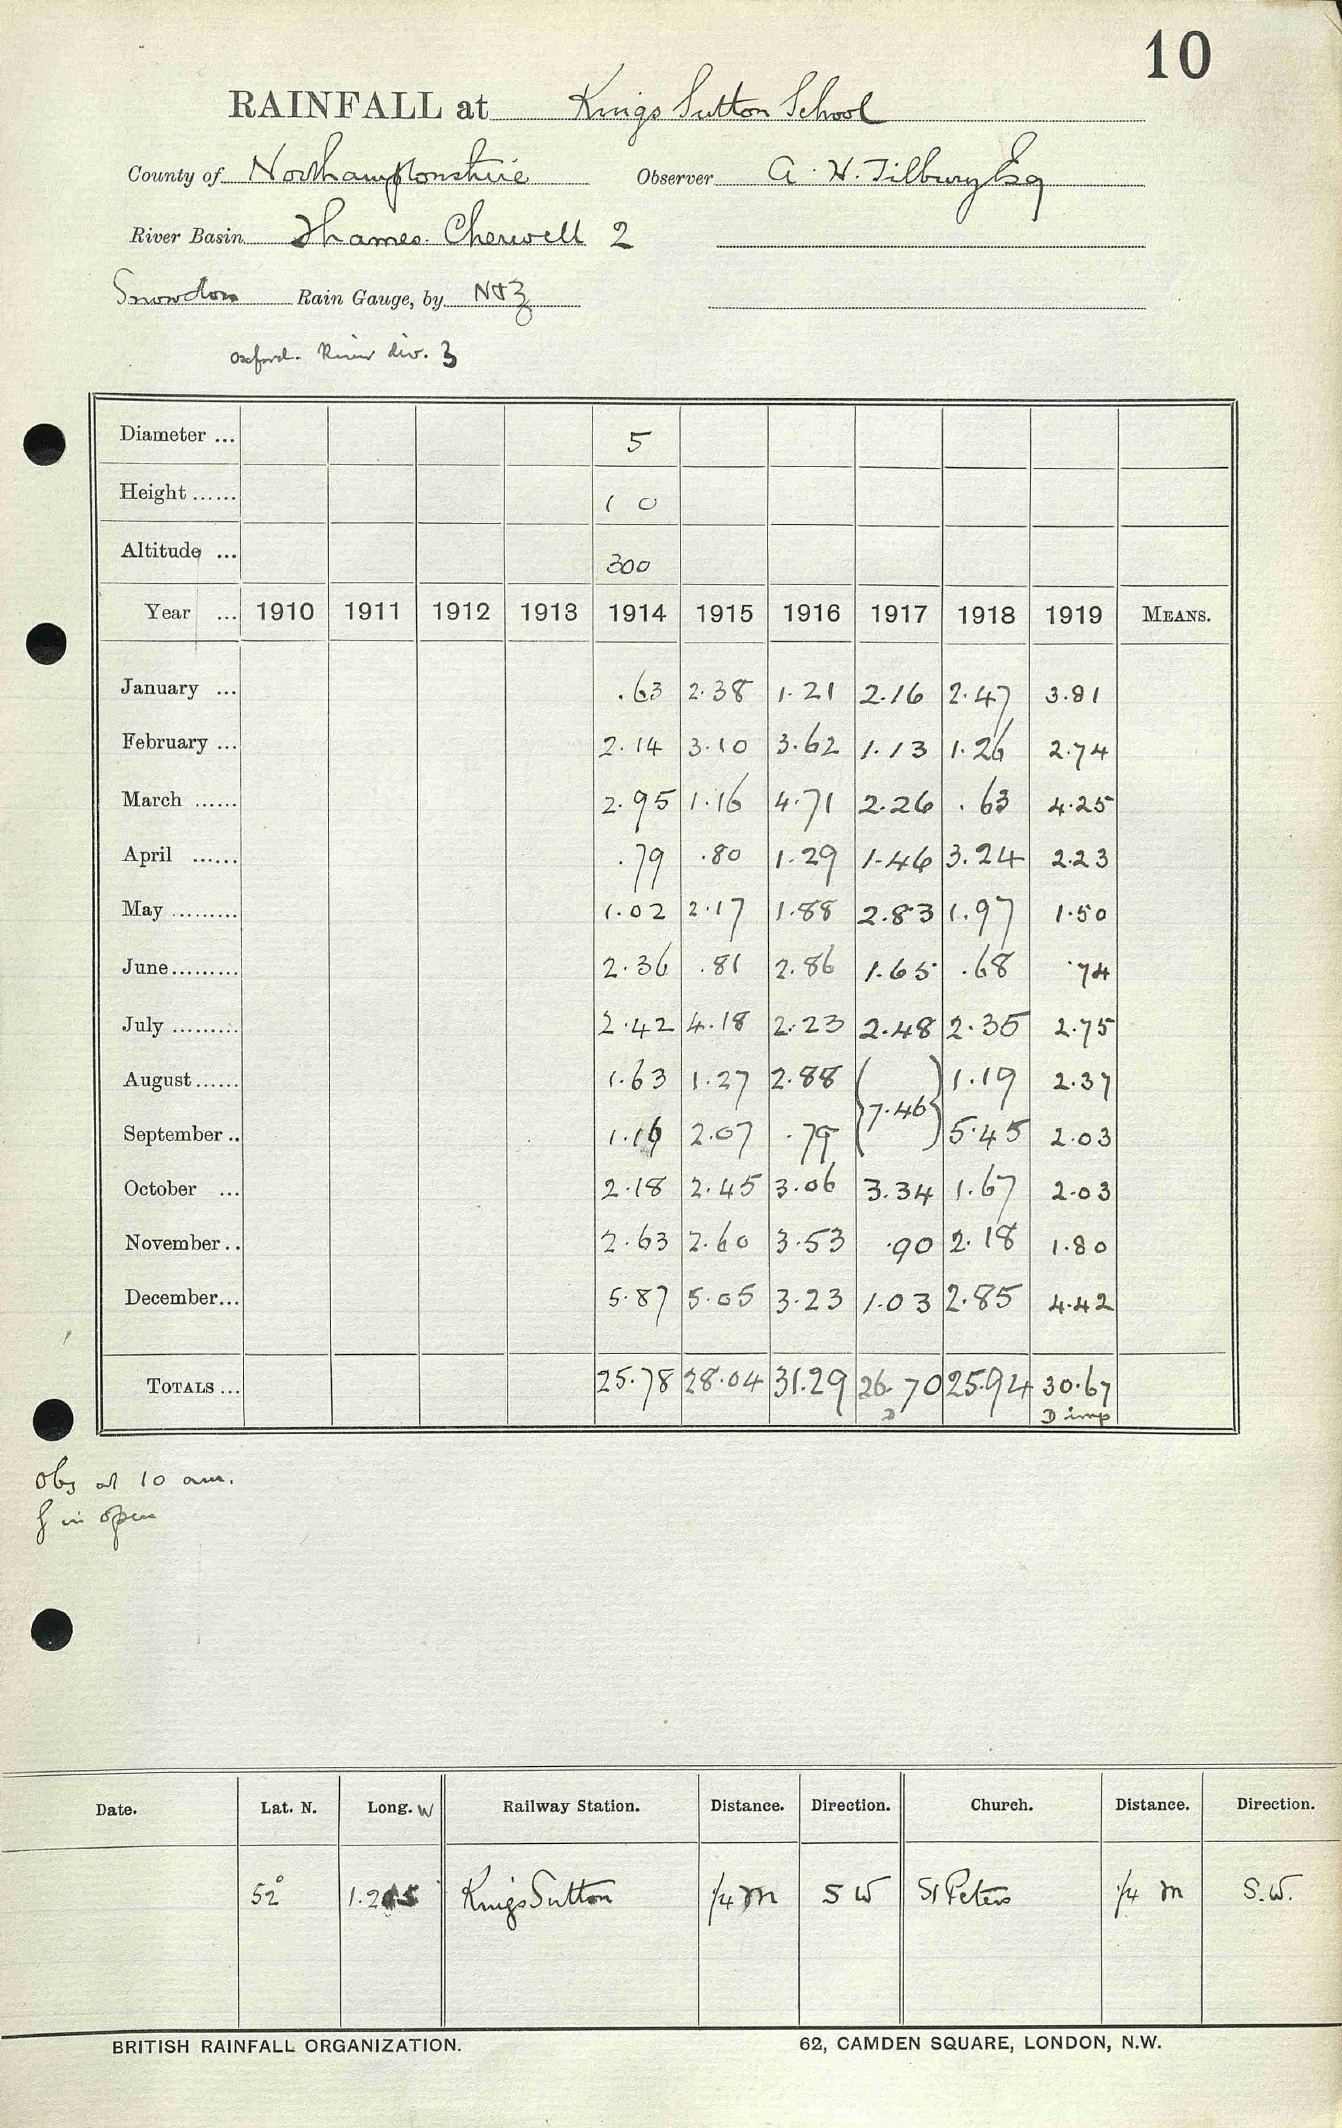 10
RAINFALL at Kings Sutton School
County of Northamptonshire Observer A. H. Tilbury Esq
River Basin Thames. Cherwell 2
Snowdon Rain Gauge, by N&Z
Oxford. River div. 3
Diameter ... 5
Height ...... 10
Altitude ... 300
Year ... 1910 1911 1912 1913 1914 1915 1916 1917 1918 1919 MEANS.
January ... .63 2.38 1.21 2.16 2.47 3.81
February ... 2.14 3.10 3.62 1.13 1.26 2.74
March ...... 2.95 1.16 4.71 2.26 .63 4.25
April ...... .79 .80 1.29 1.46 3.24 2.23
May ......... 1.02 2.17 1.88 2.83 1.97 1.50
June......... 2.36 .81 2.86 1.65 .68 .74
July ......... 2.42 4.18 2.23 2.48 2.35 2.75
August...... 1.63 1.27 2.88 {7.46} 1.19 2.37
September .. 1.16 2.07 .79 5.45 2.03
October ... 2.18 2.45 3.06 3.34 1.67 2.03
November .. 2.63 2.60 3.53 .90 2.18 1.80
December... 5.87 5.05 3.23 1.03 2.85 4.42
TOTALS ... 25.78 28.04 31.29 26.70 25.94 30.67
D D imp
Obs at 10 am.
g in open
Date. Lat. N. Long. W Railway Station. Distance. Direction. Church. Distance. Direction.
52° Kings Sutton 1/4 m S W St Peters 1/4 m S.W.
BRITISH RAINFALL ORGANIZATION. 62, CAMDEN SQUARE, LONDON, N.W.